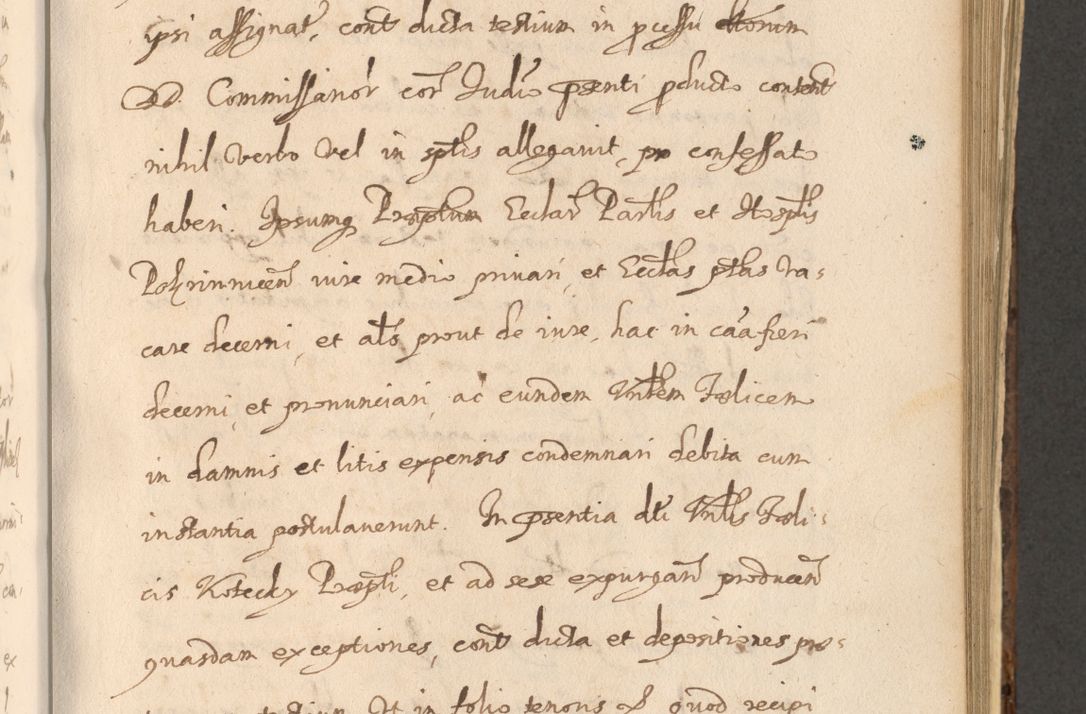 ipsi assignat, cont dicta testium in pcessu dttorum
DD. Commissarior cor Judio psenti pducto content
nihil verbo vel in sptis allegavit, pro confessato
haberi. Ipsumq Praeptum Ecclar Partis et Hosptis
iure medio privari, et Ecctas ptas va-
care decerni, et als prout de iure, hac in caa fieri
decerni, et pronunciari, ac eundem Vntem Felicem
in damnis et litis expensis condemnari debita cum
instantia postulaverunt. In psentia dti Vntis Feli-
cis Kotecky Praepti, et ad sese expurgan producen
quasdam exceptiones, cont dicta et depositiones prae-
in folio tenoris et quod recipi